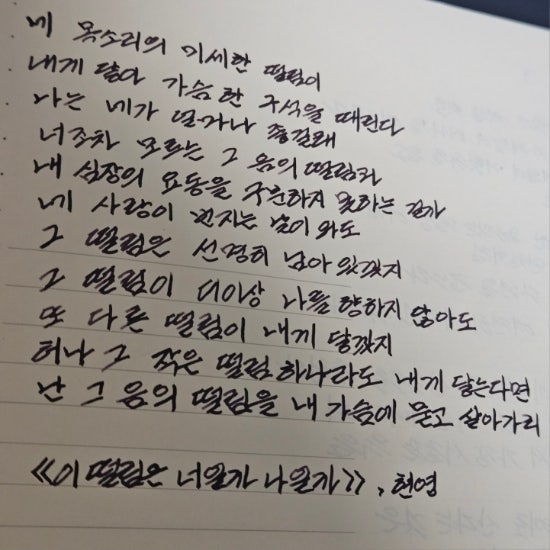 네 목소리의 미세한 떨림이
내게 닿아 가슴 한 구석을 때린다
나는 네가 언가나 좋길래
너조차 모르는 그 음의 떨림과
내 심장의 요동을 구분하지 못하는 걸까
네 사랑이 번지는 날이 와도
그 떨림은 선명히 남아 있겠지
그 떨림이 더이상 나를 향하지 않아도
또 다른 떨림이 내게 닿겠지
허나 그 작은 떨림 하나라도 내게 닿는다면
난 그 음의 떨림을 내 가슴에 묻고 살아가리
《이 떨림은 너일까 나일까》, 현영